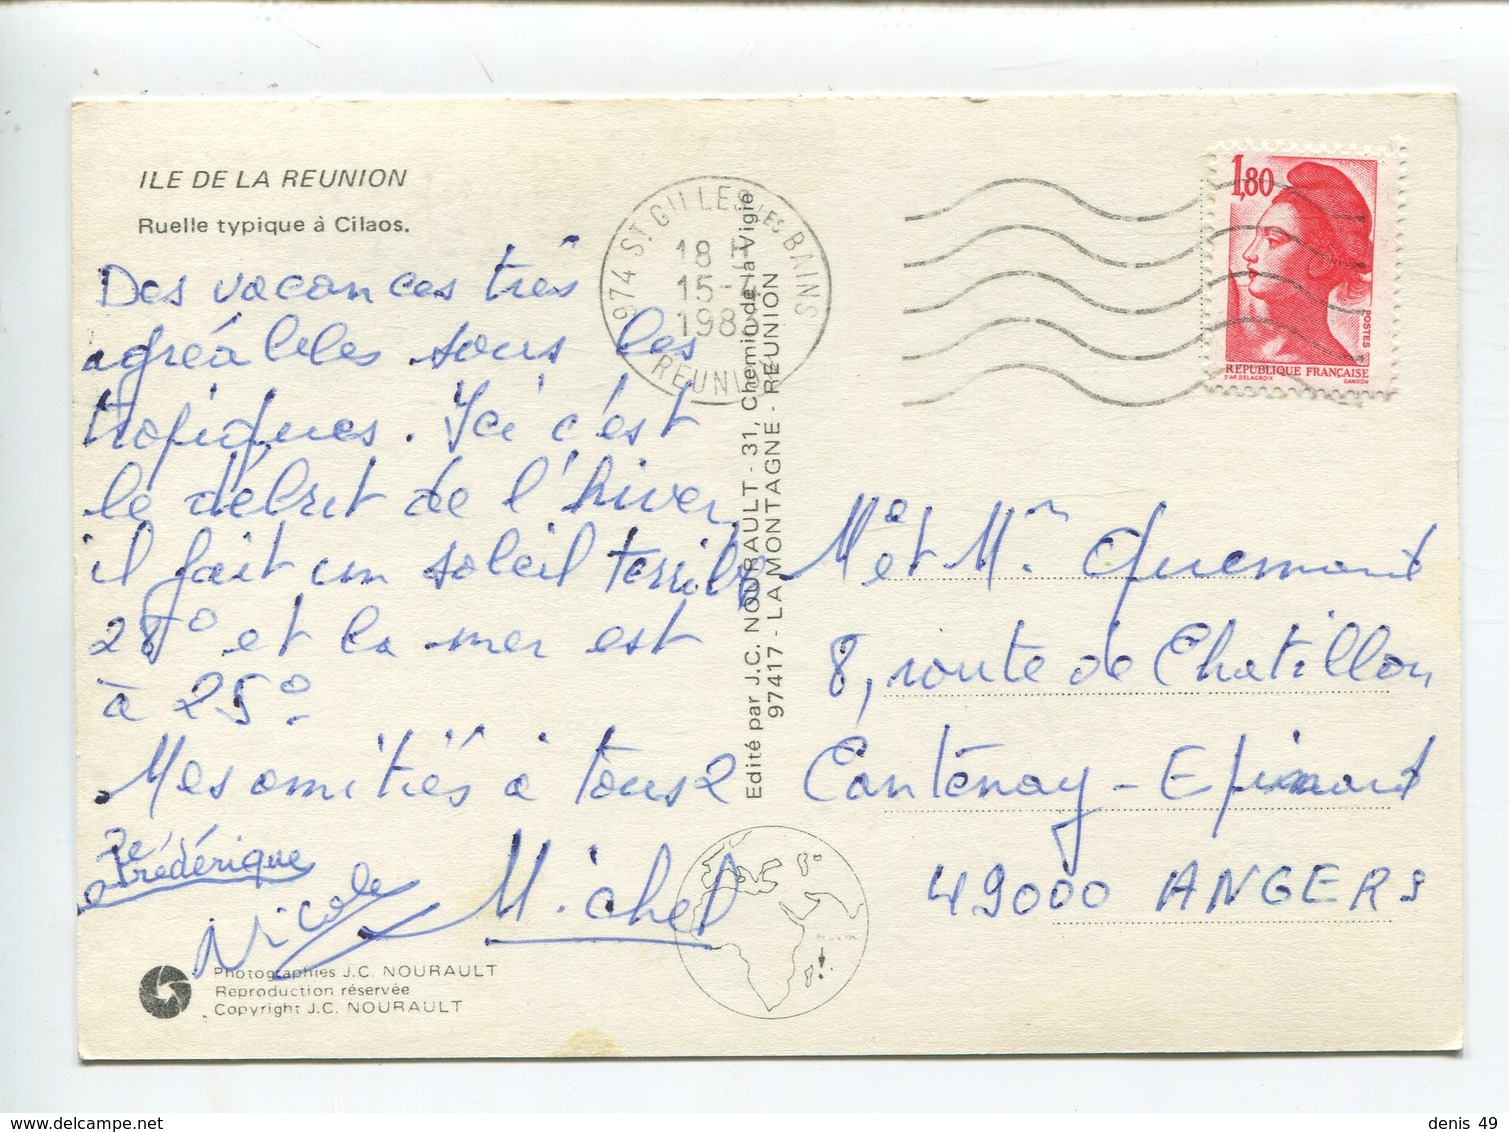 ILE DE LA REUNION
Ruelle typique à Cilaos.
Des vacances très
agréables sous les
tropiques. Ici c'est
le début de l'hiver,
il fait un soleil terrible
28° et la mer est
à 25°.
Mes amitiés à tous 2
Frédérique
Nicole
Michel
Photographies J.C. NOURAULT
Reproduction réservée
Copyright J.C. NOURAULT
974 ST GILLES LES BAINS
18 H
15-4
REUNION
Edité par J.C. NOURAULT - 31, Chemin de la Vigie
97417 - LA MONTAGNE - REUNION
1,80
POSTES
REPUBLIQUE FRANÇAISE
D'AP. DELACROIX GANDON
Me et Mr Quemard
8, route de Chatillon
Cantenay-Epinard
49000 ANGERS
denis 49